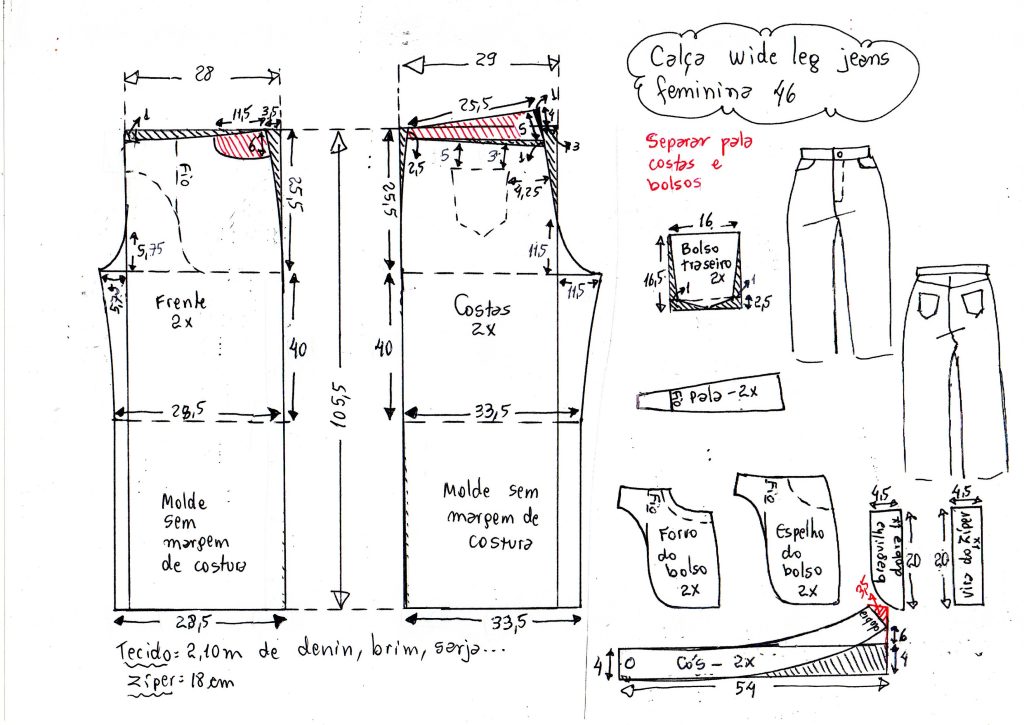 Calça wide leg jeans
feminina 46
28
1
11,5
3,5
6
Fio
25,5
5,75
5,75
Frente
2x
40
28,5
105,5
Molde
sem
margem
de costura
28,5
29
25,5
1
4
5
3
2,5
5
3
1
4,25
25,5
11,5
11,5
Costas
2x
40
33,5
Molde sem
margem de
costura
33,5
Separar pala
costas e
bolsos
16
Bolso
traseiro
2x
16,5
1
1
2,5
Fio
pala - 2x
Fio
Forro
do
bolso
2x
Fio
Espelho
do
bolso
2x
4,5
braguilha
dobra 1x
20
4,5
vira do zíper
x1
20
dobra
6
4
4
Cós - 2x
54
Tecido = 2,10m de denin, brim, sarja...
zíper = 18 cm